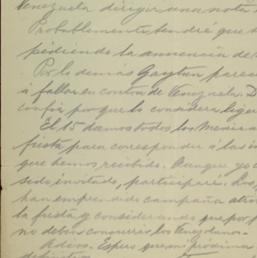 Venezuela dirigir una nota
Probablemente tendré que
pidiendo la anuencia del
Por lo demás Gaytan parece
á fallar en contra de Venezuela. D
confía porque lo considera liger
El 15 damos todos los Mexica
fiesta para corresponder á las
que hemos recibido. Aunque yo
sido invitado, participaré. Los
han emprendido campaña
la fiesta y considerando que por
no deben concurrir los Venezolanos.
Adios. Espero que mi próxima